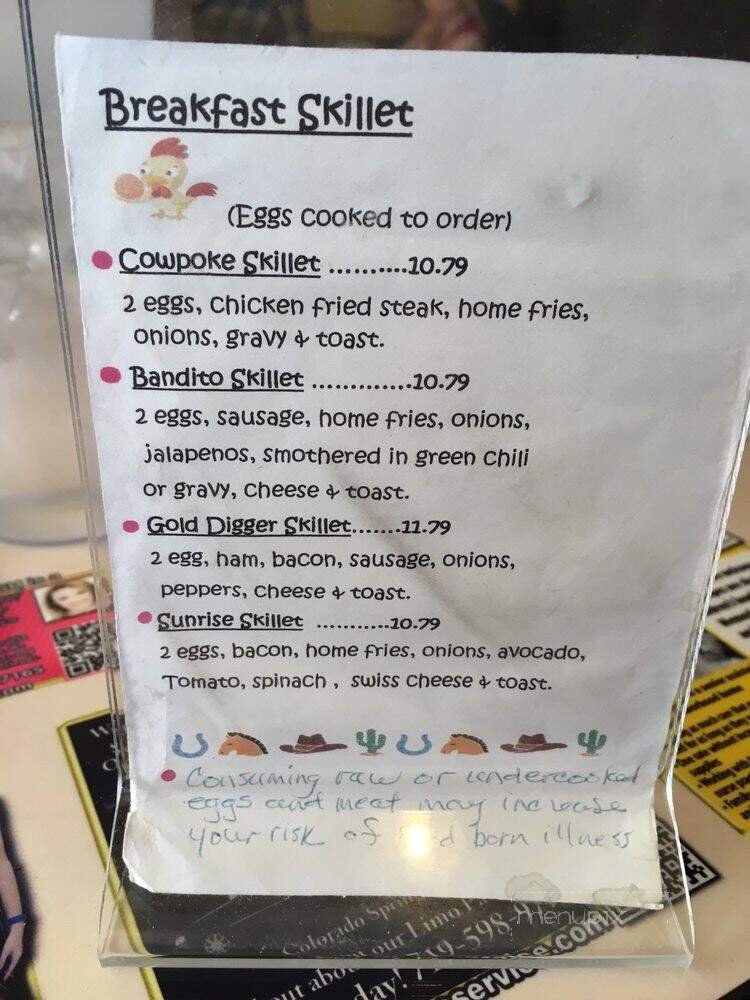 Breakfast Skillet
(Eggs cooked to order)
Cowpoke Skillet ..........10.79
2 eggs, chicken fried steak, home fries,
onions, gravy & toast.
Bandito Skillet .............10.79
2 eggs, sausage, home fries, onions,
jalapenos, smothered in green chili
or gravy, cheese & toast.
Gold Digger Skillet.......11.79
2 egg, ham, bacon, sausage, onions,
peppers, cheese & toast.
Sunrise Skillet ...........10.79
2 eggs, bacon, home fries, onions, avocado,
Tomato, spinach , swiss cheese & toast.
Consuming raw or undercooked
eggs and meat may increase
your risk of born illness
menupix
Colorado
about our Limo
719-598
service.com